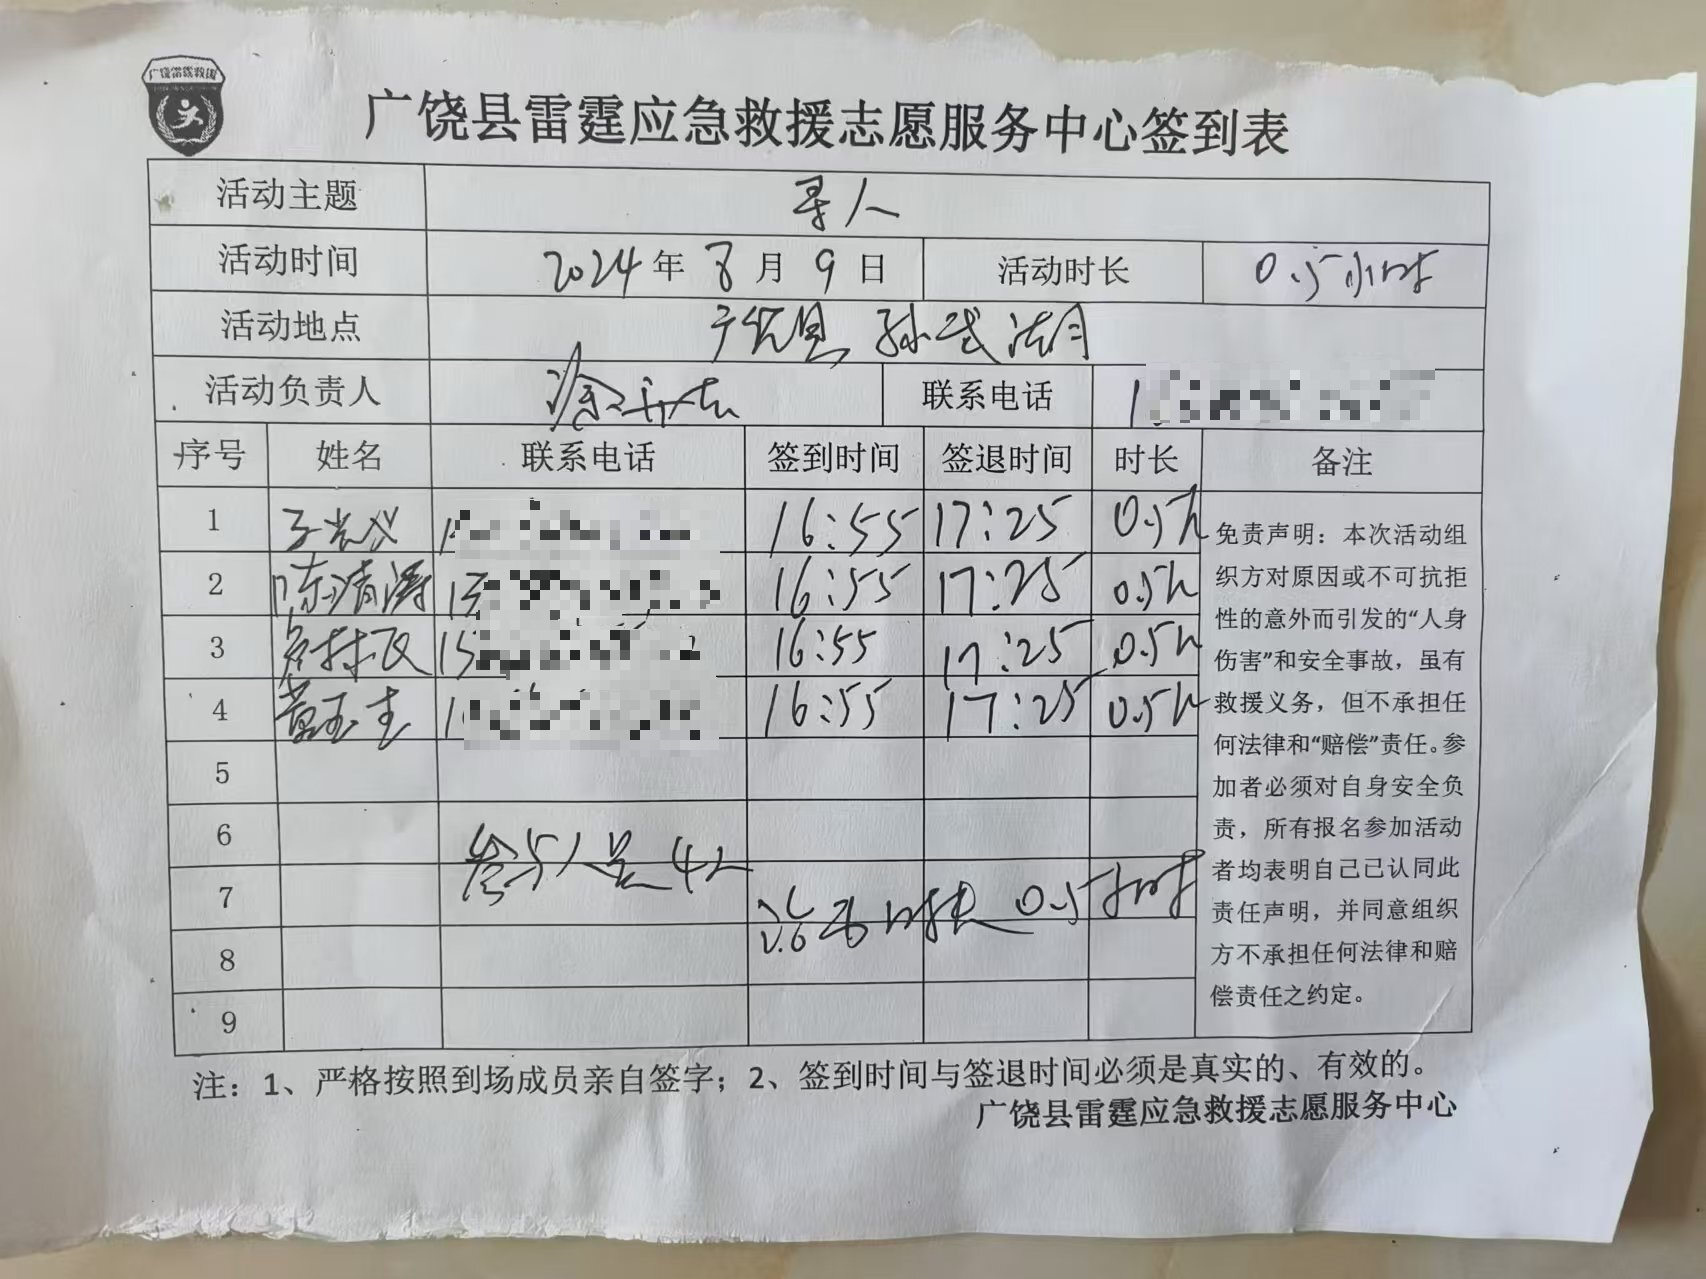 广饶雷霆救援
广饶县雷霆应急救援志愿服务中心签到表
活动主题 寻人
活动时间 2024年8月9日 活动时长 0.5小时
活动地点 广饶县 孙武湖
活动负责人 联系电话 1
序号 姓名 联系电话 签到时间 签退时间 时长 备注
1 1 16:55 17:25 0.5h
2 陈清涛 15 16:55 17:25 0.5h
3 15 16:55 17:25 0.5h
4 1 16:55 17:25 0.5h
5
6
7
8
9
参与人员4人
时长0.5小时
免责声明：本次活动组
织方对原因或不可抗拒
性的意外而引发的“人身
伤害”和安全事故，虽有
救援义务，但不承担任
何法律和“赔偿”责任。参
加者必须对自身安全负
责，所有报名参加活动
者均表明自己己认同此
责任声明，并同意组织
方不承担任何法律和赔
偿责任之约定。
注：1、严格按照到场成员亲自签字；2、签到时间与签退时间必须是真实的、有效的。
广饶县雷霆应急救援志愿服务中心